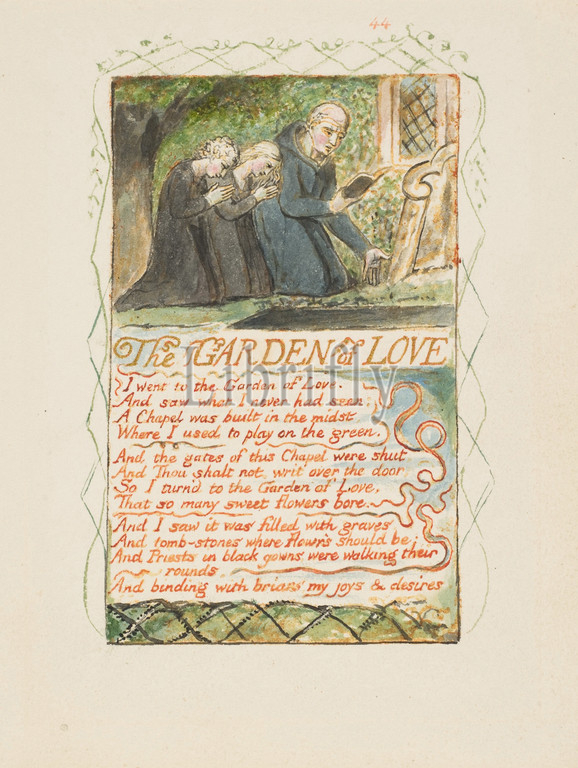 44
The GARDEN of LOVE
I went to the Garden of Love.
And saw what I never had seen:
A Chapel was built in the midst,
Where I used to play on the green.
And the gates of this Chapel were shut
And Thou shalt not, writ over the door;
So I turn'd to the Garden of Love,
That so many sweet flowers bore.
And I saw it was filled with graves,
And tomb-stones where flowers should be:
And Priests in black gowns, were walking their
rounds,
And binding with briars, my joys & desires
Librifly